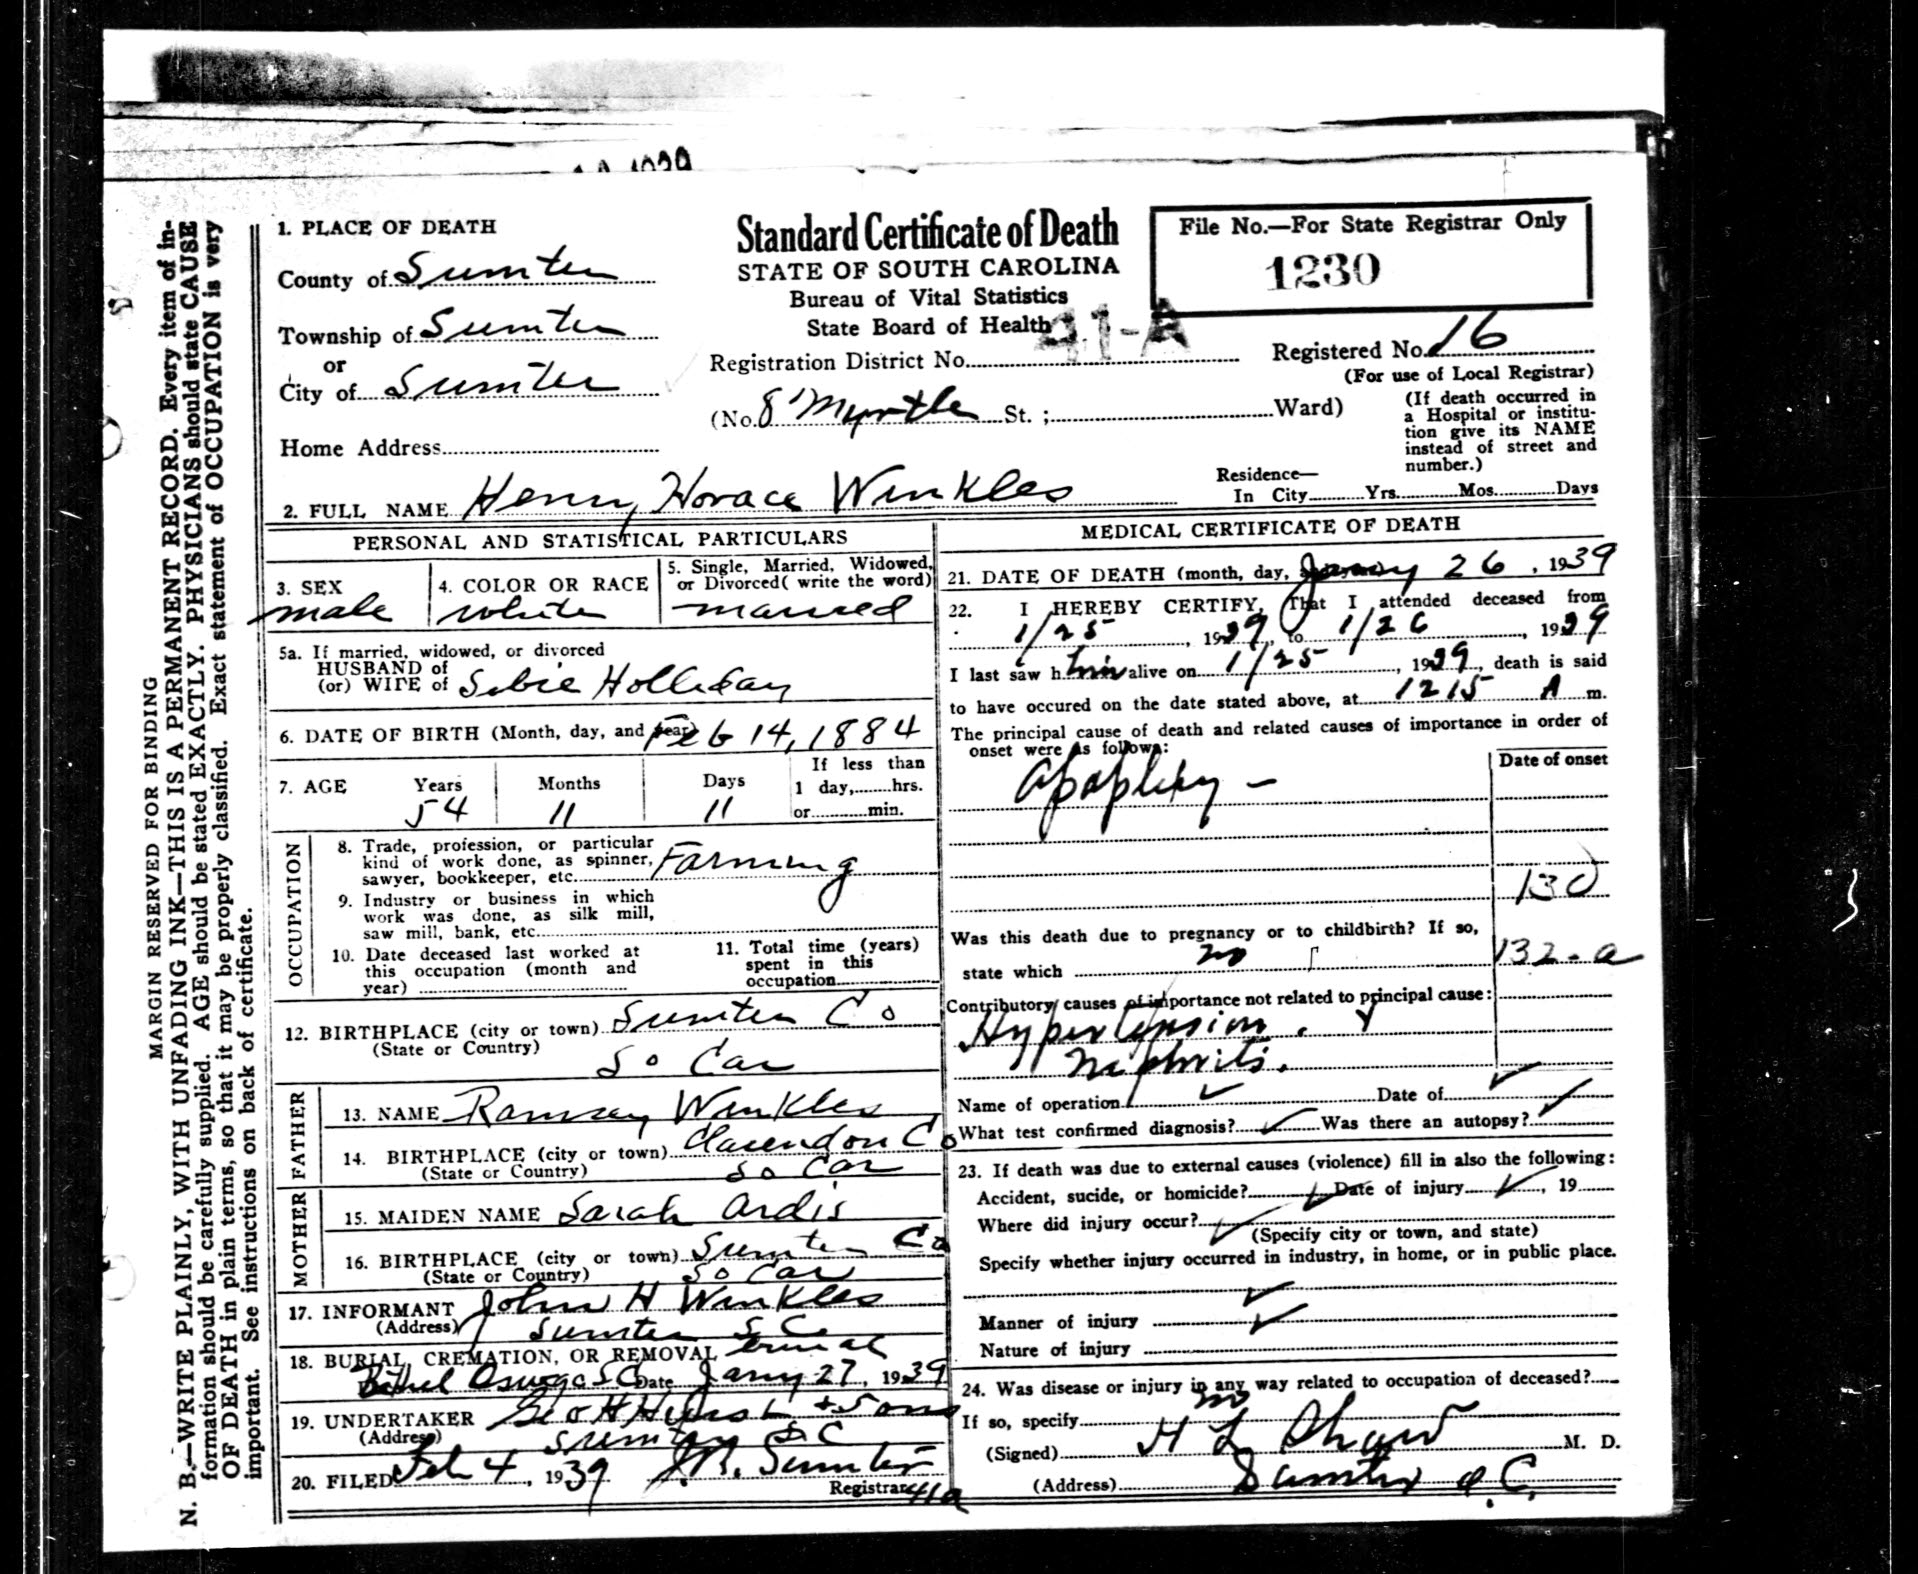 1. PLACE OF DEATH
County of Sumter
Township of Sumter
or
City of Sumter
Home Address
Standard Certificate of Death
STATE OF SOUTH CAROLINA
Bureau of Vital Statistics
State Board of Health
Registration District No. 41-A
(No. 8 Myrtle St.; Ward)
File No.—For State Registrar Only
1230
Registered No. 16
(For use of Local Registrar)
(If death occurred in
a Hospital or institu-
tion give its NAME
instead of street and
number.)
Residence—
In City Yrs. Mos. Days
2. FULL NAME Henry Horace Winkles
PERSONAL AND STATISTICAL PARTICULARS
3. SEX
male
4. COLOR OR RACE
white
5. Single, Married, Widowed,
or Divorced( write the word)
married
5a. If married, widowed, or divorced
HUSBAND of
(or) WIFE of Sibie Holliday
6. DATE OF BIRTH (Month, day, and year) Feb 14, 1884
7. AGE Years Months Days
54 11 11
If less than
1 day, hrs.
or min.
OCCUPATION
8. Trade, profession, or particular
kind of work done, as spinner,
sawyer, bookkeeper, etc. Farming
9. Industry or business in which
work was done, as silk mill,
saw mill, bank, etc.
10. Date deceased last worked at
this occupation (month and
year)
11. Total time (years)
spent in this
occupation
12. BIRTHPLACE (city or town) Sumter Co
(State or Country) So Car
FATHER
13. NAME Ramsey Winkles
14. BIRTHPLACE (city or town) Clarendon Co
(State or Country) So Car
MOTHER
15. MAIDEN NAME Sarah Ardis
16. BIRTHPLACE (city or town) Sumter Co
(State or Country) So Car
17. INFORMANT John H Winkles
(Address) Sumter S C
18. BURIAL, CREMATION, OR REMOVAL
Bethel Oswego S C Date Jany 27, 1939
19. UNDERTAKER Geo H Hurst + Sons
(Address) Sumter S C
20. FILED Feb 4, 1939 J.R. Sumter
Registrar 41a
MEDICAL CERTIFICATE OF DEATH
21. DATE OF DEATH (month, day, Jany 26, 1939
22. I HEREBY CERTIFY, That I attended deceased from
1/25, 1939, to 1/26, 1939
I last saw him alive on 1/25, 1939, death is said
to have occured on the date stated above, at 1215 A m.
The principal cause of death and related causes of importance in order of
onset were as follows:
Date of onset
Apoplexy –
130
Was this death due to pregnancy or to childbirth? If so,
state which no
132-a
Contributory causes of importance not related to principal cause:
Hypertension.
Nephritis.
Name of operation Date of
What test confirmed diagnosis? Was there an autopsy?
23. If death was due to external causes (violence) fill in also the following:
Accident, sucide, or homicide? Date of injury , 19
Where did injury occur?
(Specify city or town, and state)
Specify whether injury occurred in industry, in home, or in public place.
Manner of injury
Nature of injury
24. Was disease or injury in any way related to occupation of deceased?
If so, specify no
(Signed) H L Shaw M. D.
(Address) Sumter S.C.
MARGIN RESERVED FOR BINDING
N. B.—WRITE PLAINLY, WITH UNFADING INK—THIS IS A PERMANENT RECORD. Every item of in-
formation should be carefully supplied. AGE should be stated EXACTLY. PHYSICIANS should state CAUSE
OF DEATH in plain terms, so that it may be properly classified. Exact statement of OCCUPATION is very
important. See instructions on back of certificate.